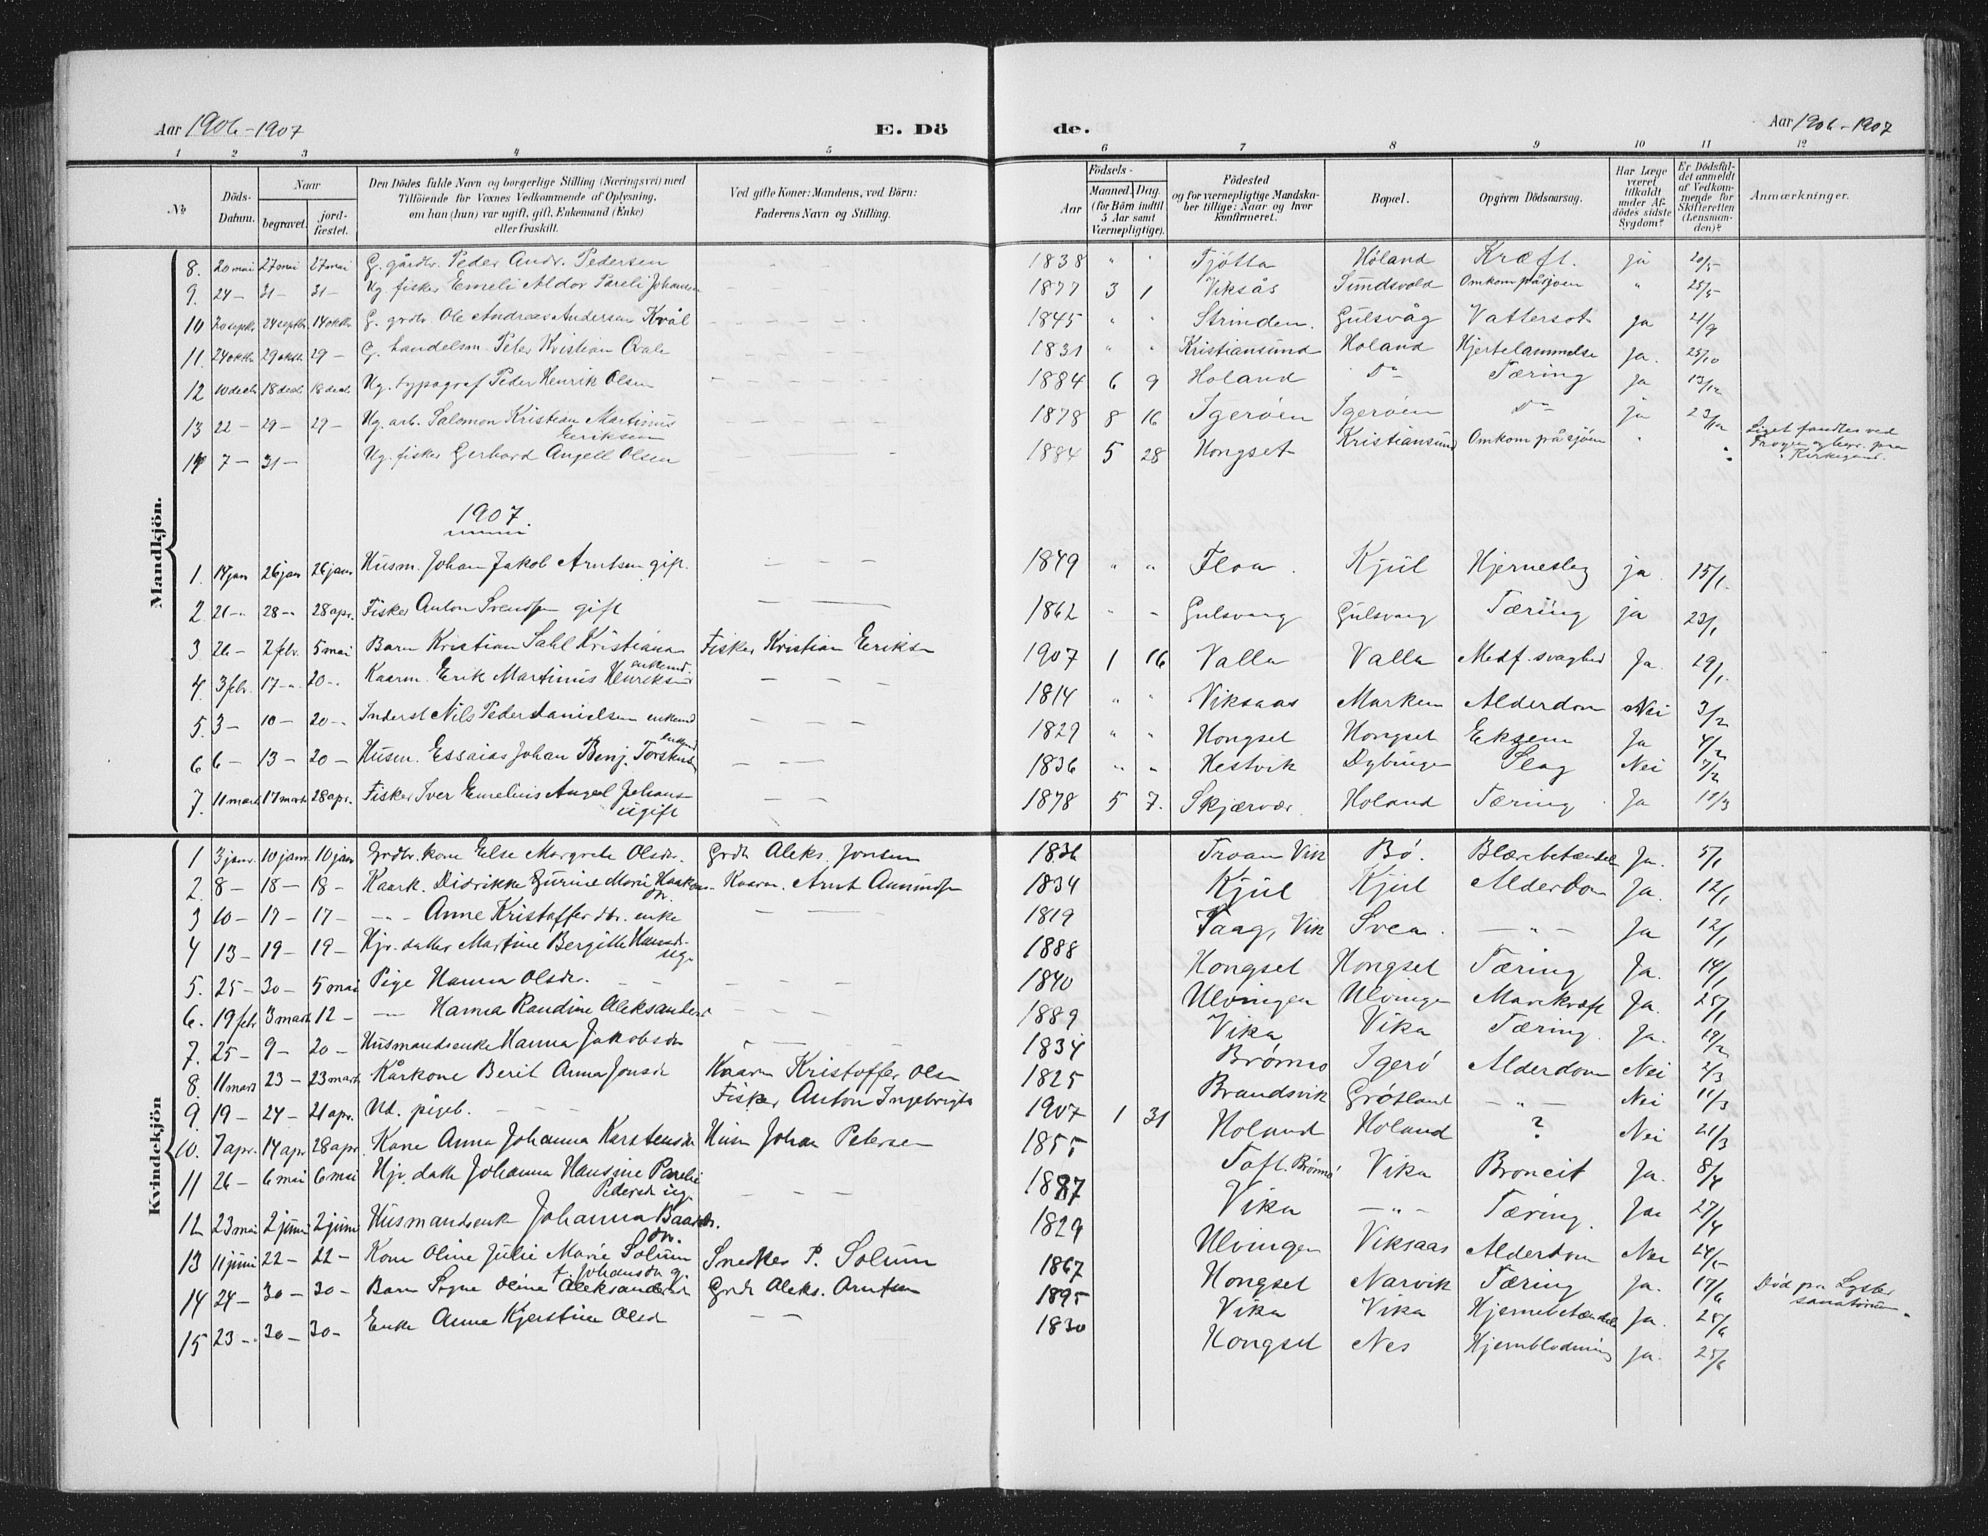 Aar 1906-1907
E. Dö
de.
Aar 1906-1907
1 2 3 4 5 6 7 8 9 10 11 12
No
Döds-Datum.
Naar
begravet.
jord-fæstet.
Den Dödes fulde Navn og borgerlige Stilling (Næringsvei) med
Tilföiende for Voxnes Vedkommende af Oplysning,
om han (hun) var ugift, gift, Enkemand (Enke)
eller fraskilt.
Ved gifte Koner: Mandens, ved Börn:
Faderens Navn og Stilling.
Födsels-
Aar
Maaned. Dag.
(for Börn indtil
5 Aar samt
Værnepligtige).
Födested
og for værnepligtige Mandska-
ber tillige: Naar og hvor
Konfirmeret.
Bopæl.
Opgiven Dödsaarsag.
Har Læge
været
tilkaldt
under Af-
dödes sidste
Sygdom?
Er Dödsfal-
det anmeldt
af Vedkom-
mende for
Skifteretten
(Lensman-
den)?
Anmærkninger.
Mandkjön.
8. 20 mai 27 mai 27 mai G. gårdbr. Peder Andr. Pedersen 1838 " " Tjötta Höland Kræft. ja 20/5
9. 24 - 31 - 31 - Ug. fisker Emeli Aldor Pareli Johansen 1877 3 1 Viksås Sundsvold Omkom på sjøen " 25/5
10 20 septbr 24 septbr 14 oktbr G. grdbr Ole Andreas Andersen Kvål 1845 " " Strinden. Gulsvåg Vattersot ja 21/9
11. 24 oktbr 29 oktbr 29 - G. handelsm. Peter Kristian Qvale 1831 " " Kristiansund Holand Hjertelammelse Ja. 25/10
12 10 decb 18 decb 18 decb Ug. typograf Peder Henrik Olsen 1884 6 9 Holand Do Tæring ja 13/12
13 22 - 29 - 29 - Ug. arb. Salomon Kristian Martinus Eriksen 1878 8 16 Igerøen Igerøen Do ja 23/12
14 7 - 31 - Ug. fisker Gerhard Angell Olsen 1884 5 28 Hongset Kristiansund Omkom på sjöen " " Liget fandtes ved
Kirkegård.
1907.
1. 14 jan 26 jan 26 jan Husm. Johan Jakob Arntsen gift. 1849 " " Floa. Kjul Hjerneslag ja. 15/1.
2 21 - 28 - 28 apr. Fisker Anton Svendsen gift 1862 - - Gulsvaag Gulsvaag Tæring ja 23/1
3 26 - 2 febr. 5 mai Barn Kristian Sahl Kristiansen Fisker Kristian Eriksen 1907 1 16 Valla Valla Medf. svaghed Ja. 29/1.
4. 3 febr. 17 - 20 - Kaarm. Erik Martinus Henriksen enkemd 1814 " " Viksaas Marken Alderdom Nei 3/2
5. 3 - 10 - 20 - Inderst Nils Peder Danielsen enkemd 1829 " " Hongset Hongset Eksem Ja 4/2
6 6 - 13 - 20 - Husm. Essaias Johan Benj. Torsteinsen enkemd 1836 " " Hestvik Dybvingen Slag Nei 7/2
7. 11 marts 17 marts 28 apr. Fisker Iver Emelius Angel Johansen ugift 1878 5 7. Skjærvær Holand Tæring Ja 12/3
Kvindekjön
1 3 janr. 10 janr 10 jan Grdbr. kone Else Margrete Olsdr. Grdb. Aleks. Jonsen 1836 Troan Vik Bø. Blærebetændel Ja. 5/1
2. 8 - 18 - 18 - Kaark. Didrikke Gurine Marie Haakonsdr. Kaarm. Arnt Amundsen 1834 Kjul Kjul Alderdom Ja. 12/1
3 10 - 17 - 17 - - " - Anne Kristofferdtr. enke 1819 Faag, Vik Svea. - " - Ja 12/1
4 13 - 19 - 19 - Hjv. datter Martine Bergitte Hansdr. ug. 1888 Hongset Hongset Tæring Ja. 14/1
5. 25 - 30 - 5 mai Pige Hanna Olsdr. 1840 Ulvingen Ulvingen Mavekræft Ja. 25/1
6. 19 febr 3 marts 12 - - " - Hanna Randine Aleksandersd 1889 Vika Vika Tæring. Ja. 19/2
7. 25 - 9 - 20 - Husmandsenke Hanna Jakobsdr 1834 Brønnø Igerö Alderdom Nei 2/3
8. 11 marts 23 - 23 marts Kårkone Berit Anna Jonsdr Kaarm Kristoffer Olsen 1825 Brandsvik Grötland - " - Nei 11/3
9. 19 - 24 - 21 apr. Ud. pigeb. Fisker Anton Ingebrigts 1907 1 31 Holand Holand ? Nei 21/3
10. 7 apr. 14 apr 28 apr. Kone Anna Johanna Karstensdr Husm Johan Petersen 1855 Toft. Brönnö Vika Broncit Ja. 8/4
11 26 - 6 mai 6 mai Hjv. datter Johanna Hansine Parelie Pedersdr ug. 1887 Vika - " - Tæring. Ja 27/4
12 23 mai 2 juni 2 juni Husmandsenke Johanna Baardsdr. 1829 Ulvingen Viksaas Alderdom Nei 24/5
13 11 juni 22 - 22 - Kone Oline Julie Marie Solum f. Johansdr g. Snedker P. Solum 1867 Hongset Narvik Tæring Ja. 17/6 Död paa Lyster
sanatorium.
14 24 - 30 - 30 - Barn Signe Oline Aleksandersd Grdb Aleks. Arntsen 1895 Vika Vika Hjernebetændelse Ja. 25/6
15 23 - 30 - 30 - Enke Anne Kjerstine Olsd 1830 Hongset Nes Hjerneblødning Ja. 25/6